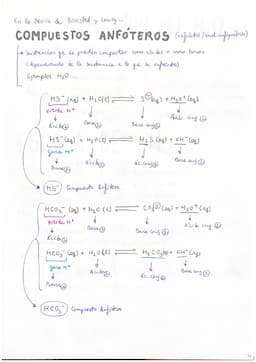 En la teoría de Brönsted y Lowry...
COMPUESTOS ANFÓTEROS (anfolitos / anfipróticos)
Sustancias que se pueden comportar como ácidos o como bases
(dependiendo de la sustancia a la que se enfrenten)
Ejemplos: H₂O ...
HS⁻ (aq) + H₂O (l) ⇌ S²⁻ (aq) + H₃O⁺ (aq)
pierde H⁺
Ácido ① Base ② Base conj ① Ácido conj ②
HS⁻ (aq) + H₂O (l) ⇌ H₂S (aq) + OH⁻ (aq)
gana H⁺
Base ① Ácido ② Ác. conj ① Base conj ②
HS⁻ Compuesto Anfótero
HCO₃⁻ (aq) + H₂O (l) ⇌ CO₃²⁻ (aq) + H₃O⁺ (aq)
pierde H⁺
Ácido ① Base ② Base conj ① Ácido conj ②
HCO₃⁻ (aq) + H₂O (l) ⇌ H₂CO₃ (aq) + OH⁻ (aq)
gana H⁺
Base ① Ácido ② Ác. conj ① Base conj ②
HCO₃⁻ Compuesto Anfótero